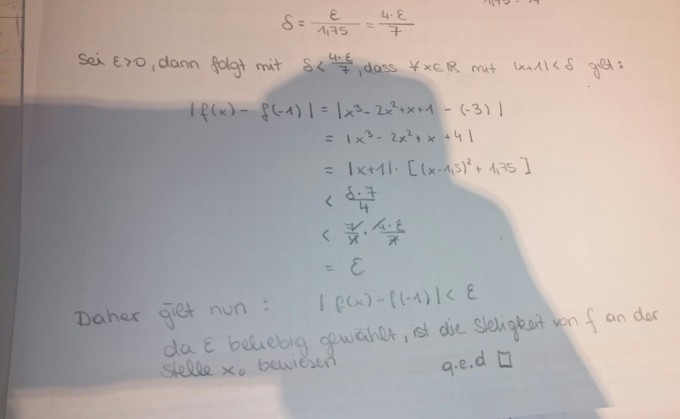 δ = ε/1,75 = 4·ε/7
Sei ε>0, dann folgt mit δ < 4·ε/7, dass ∀x∈ℝ mit |x+1| < δ gilt:
|f(x) - f(-1)| = |x³ - 2x² + x + 1 - (-3)|
= |x³ - 2x² + x + 4|
= |x+1| · [(x-1,5)² + 1,75]
< δ·7/4
< 7/4 · 4·ε/7
= ε
Daher gilt nun : |f(x) - f(-1)| < ε
da ε beliebig gewählt, ist die Stetigkeit von f an der
stelle x₀ bewiesen
q.e.d □